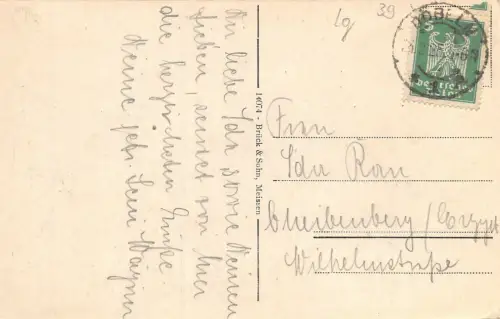 Dir liebe Ida sowie Deinen
Lieben, sendet von hier
die herzlichsten Grüße
Deine
lg
39
DÖBELN
Deutsches
Reich
14074 - Brück & Sohn, Meissen
Frau
Ida Rau
Scheibenberg / Erzgeb.
Wilhelmstraße